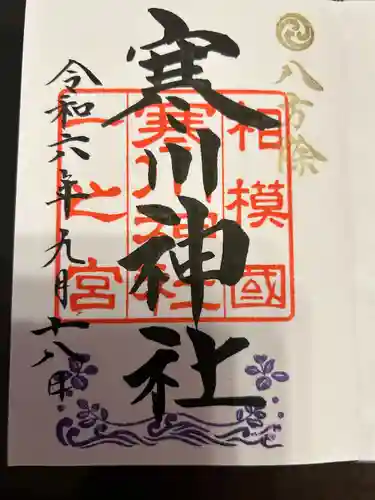 八方除
寒川神社
相模國
寒川神社
一之宮
令和六年九月十八日